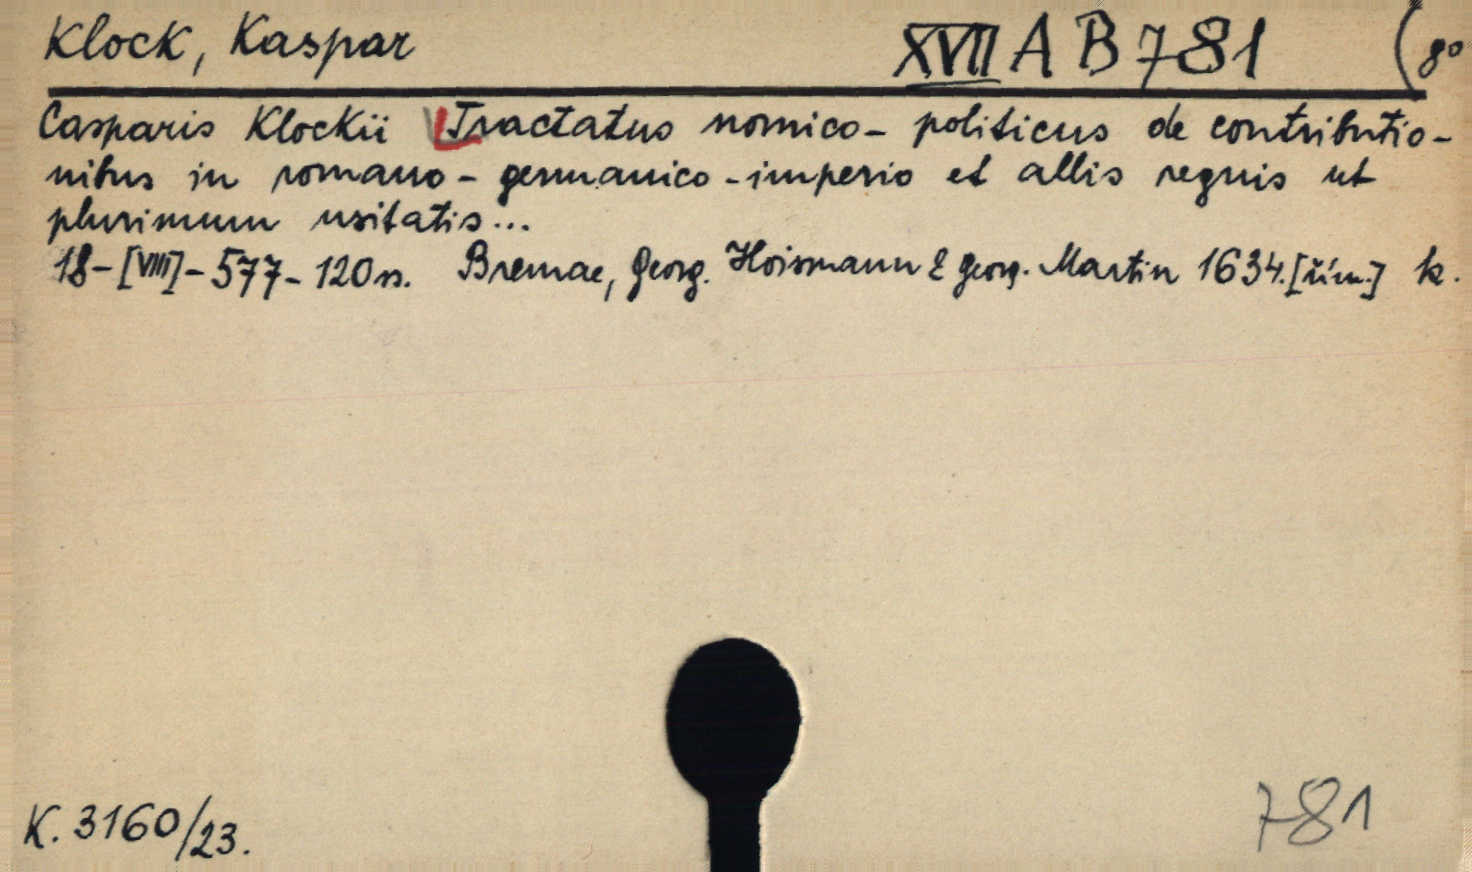 Klock, Kaspar XVII A B 781 (8°
Casparis Klockii Tractatus nomico-politicus de contributio-
nibus in romano-germanico-imperio et allis regnis ut
plurimum usitatis...
18-[VIII]-577-120 s. Bremae, Georg. Hoismann & Georg. Martin 1634.[řím.] k.
K. 3160/23.
781